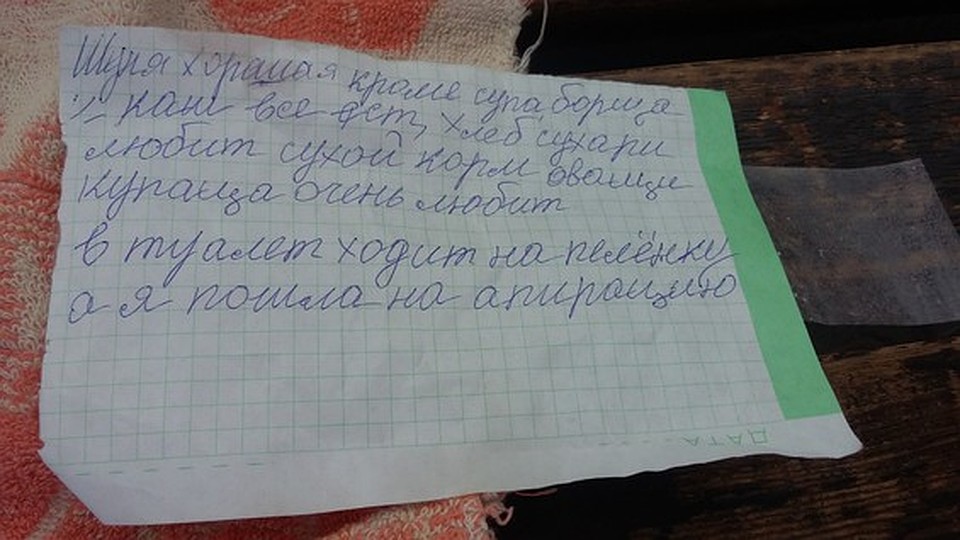 Шуля хорашая кроме супа борща
и каш все ест, хлеб сухари
любит сухой корм оващи
купаца очень любит
в туалет ходит на пелёнку
а я пошла на апирацию
ДАТА